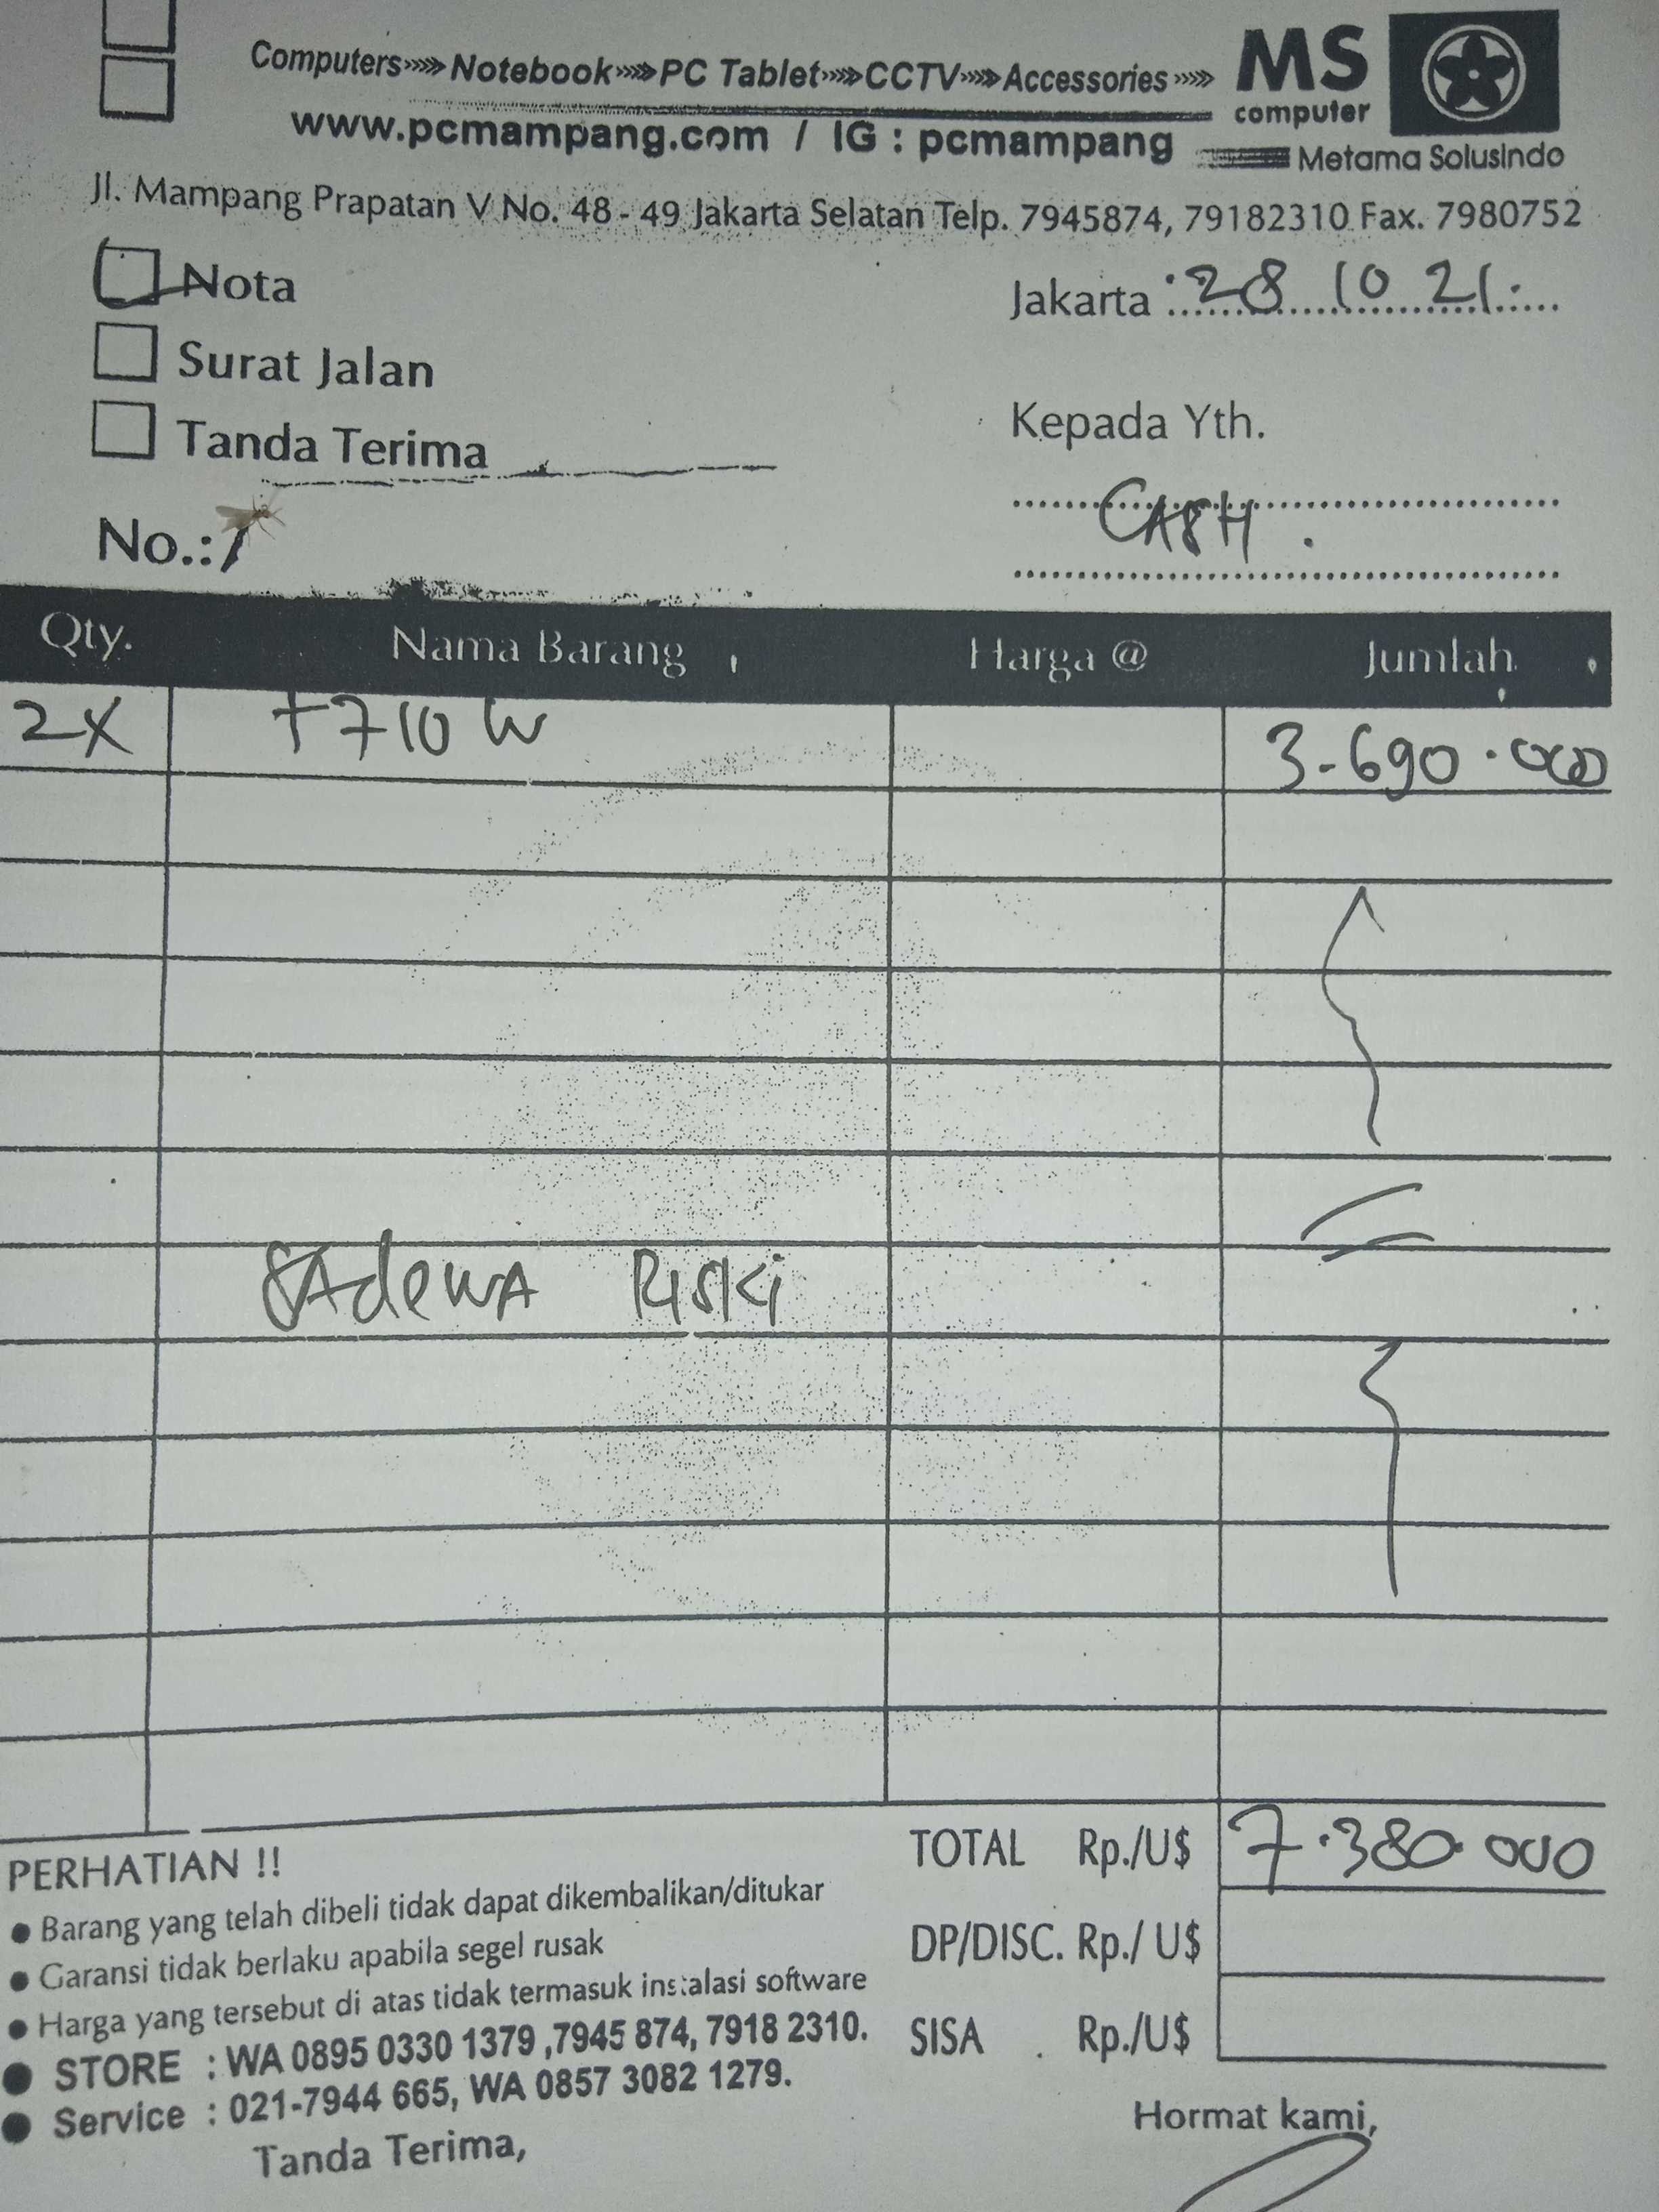 Computers Notebook PC Tablet CCTV Accessories
MS
computer
www.pcmampang.com / IG : pcmampang
Metama Solusindo
Jl. Mampang Prapatan V No. 48 - 49 Jakarta Selatan Telp. 7945874, 79182310 Fax. 7980752
Nota
Jakarta : 28 10 21.
Surat Jalan
Kepada Yth.
Tanda Terima
CASH.
No.:
Qty. Nama Barang Harga @ Jumlah
2X T710W 3.690.000
SAdewA Riski
TOTAL Rp./U$ 7.380.000
DP/DISC. Rp./ U$
SISA Rp./U$
PERHATIAN !!
● Barang yang telah dibeli tidak dapat dikembalikan/ditukar
● Garansi tidak berlaku apabila segel rusak
● Harga yang tersebut di atas tidak termasuk instalasi software
● STORE : WA 0895 0330 1379 ,7945 874, 7918 2310.
● Service : 021-7944 665, WA 0857 3082 1279.
Tanda Terima,
Hormat kami,